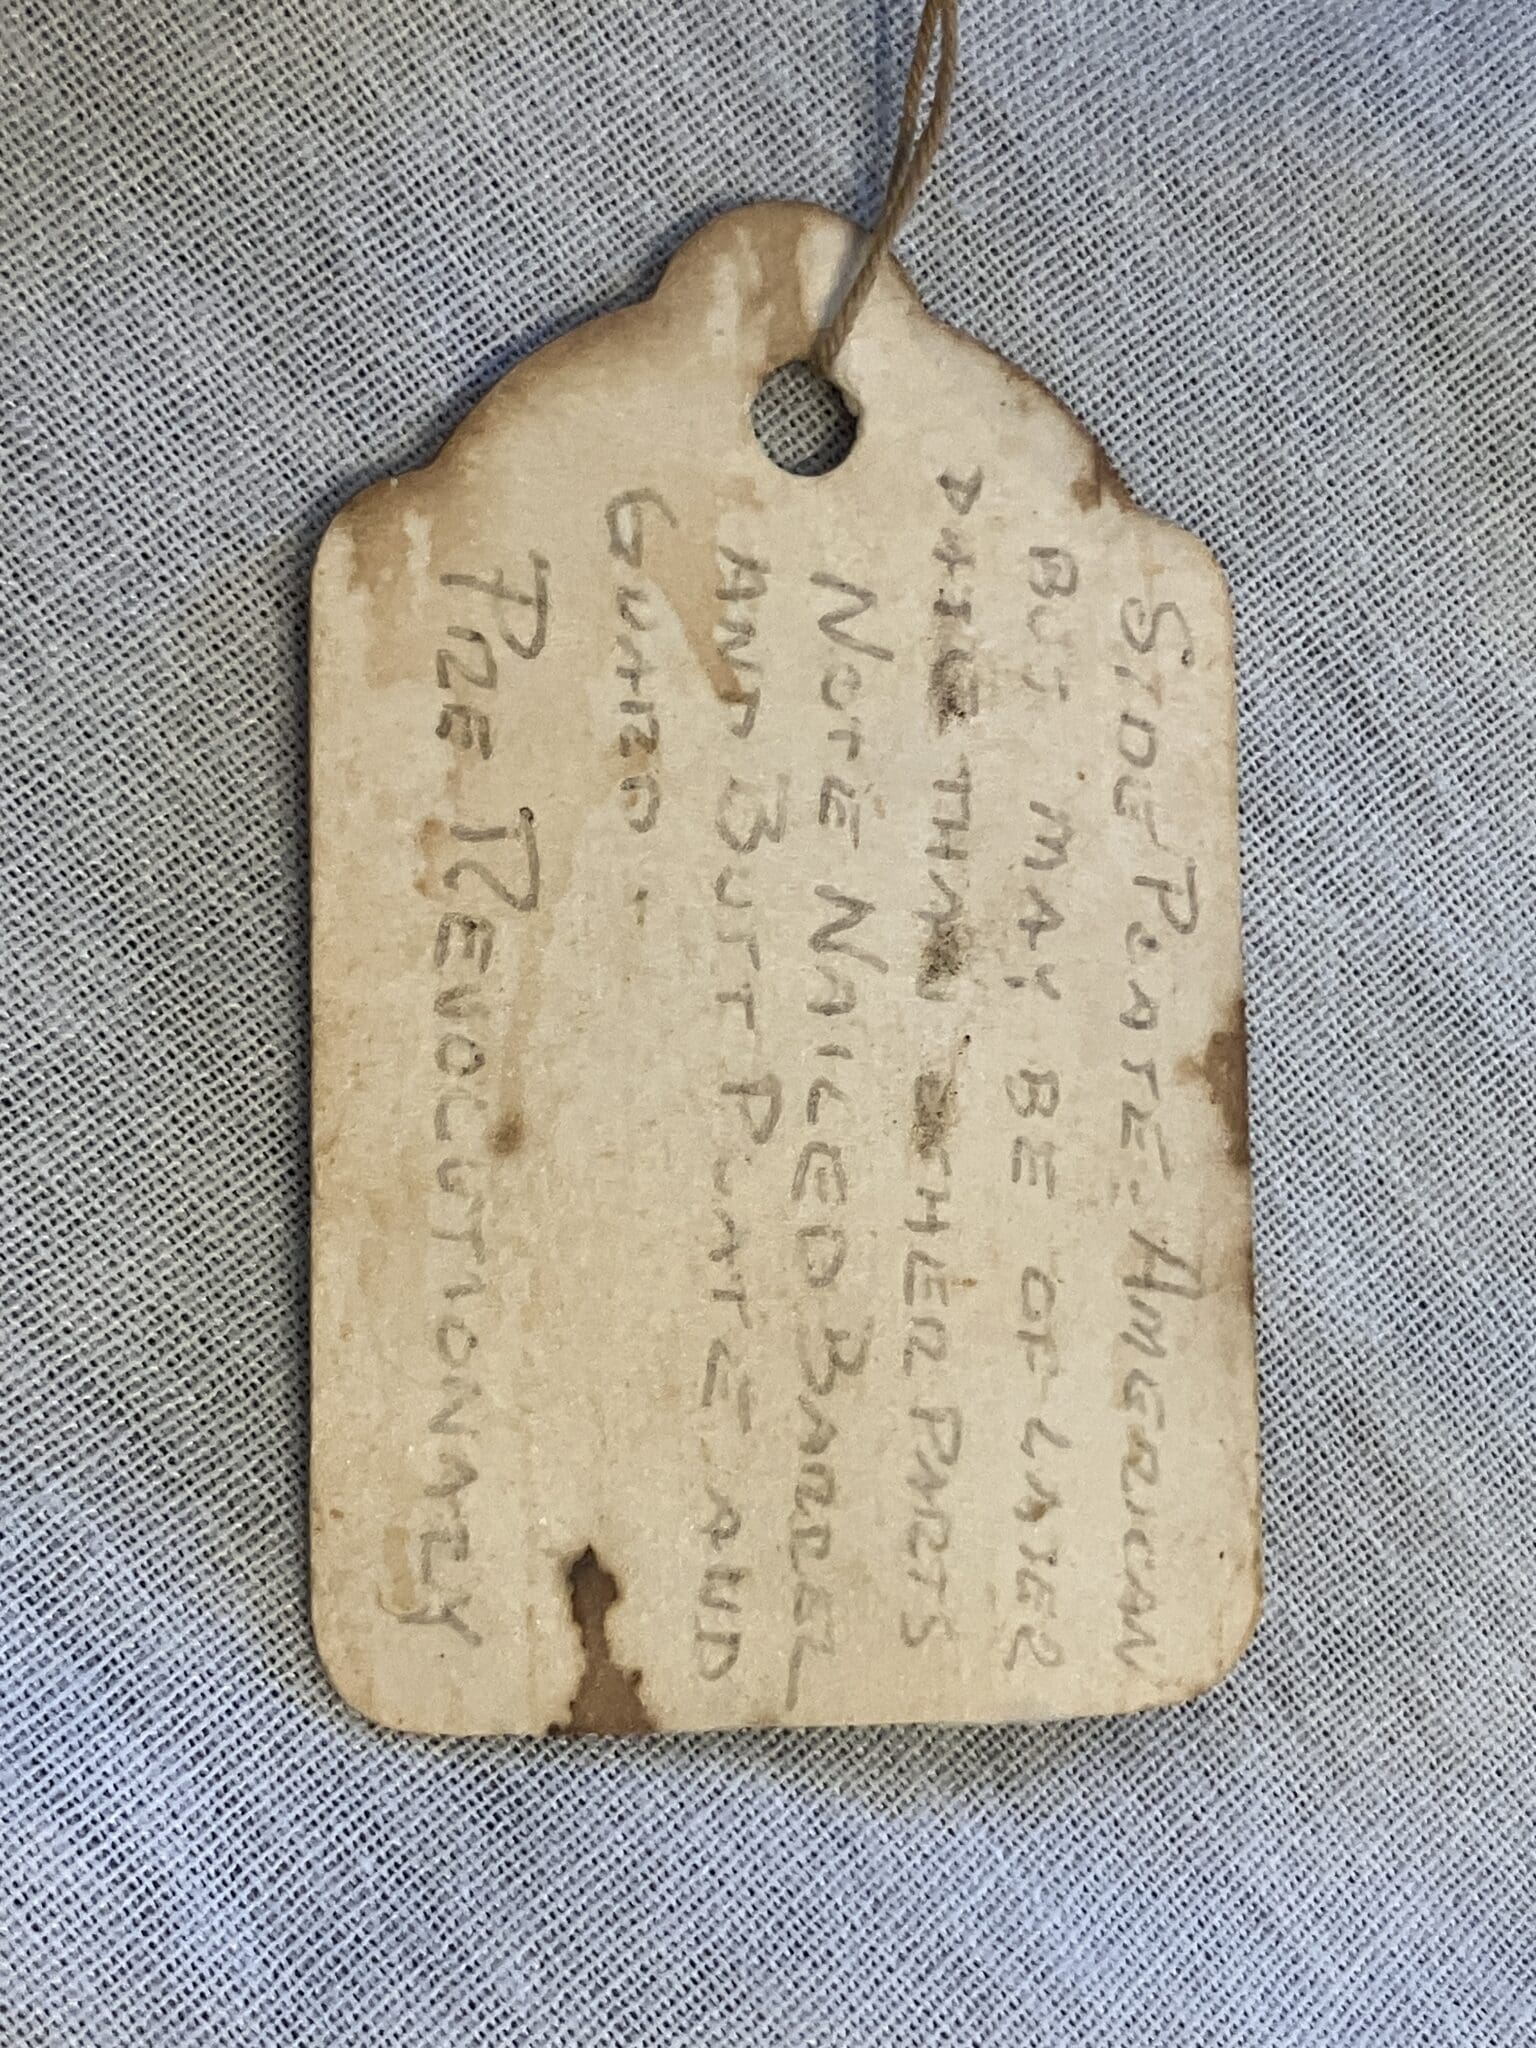 SIDE PLATE. AMERICAN
BUT MAY BE OF LATER
DATE THAN OTHER PARTS
NOTE NAILED BARREL
AND BUTT PLATE AND
GUARD -
PRE REVOLUTIONARY